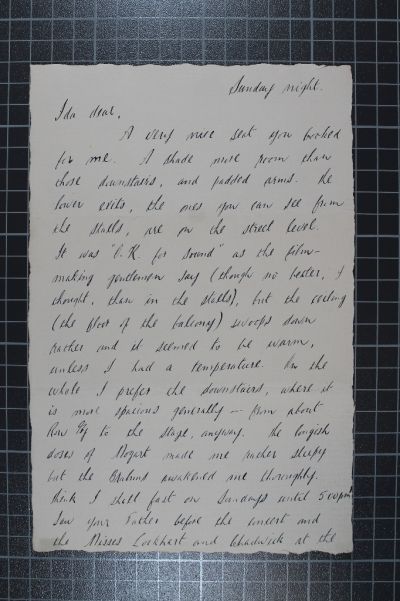 Sunday night.
Ida dear,
A very nice seat you booked
for me. A shade more room than
those downstairs, and padded arms. The
lower exits, the ones you can see from
the stalls, are on the street level.
It was "O.K. for sound" as the film-
making gentlemen say (though no better, I
thought, than in the stalls), but the ceiling
(the floor of the balcony) swoops down
rather and it seemed to be warm,
unless I had a temperature. On the
whole I prefer the downstairs, where it
is more spacious generally — from about
Row to the stage, anyway. The longish
doses of Mozart made me rather sleepy
but the Brahms awakened me thoroughly.
Think I shall fast on Sundays until 5.00pm
Saw your Father before the concert and
the Misses Lockhart and Chadwick at the